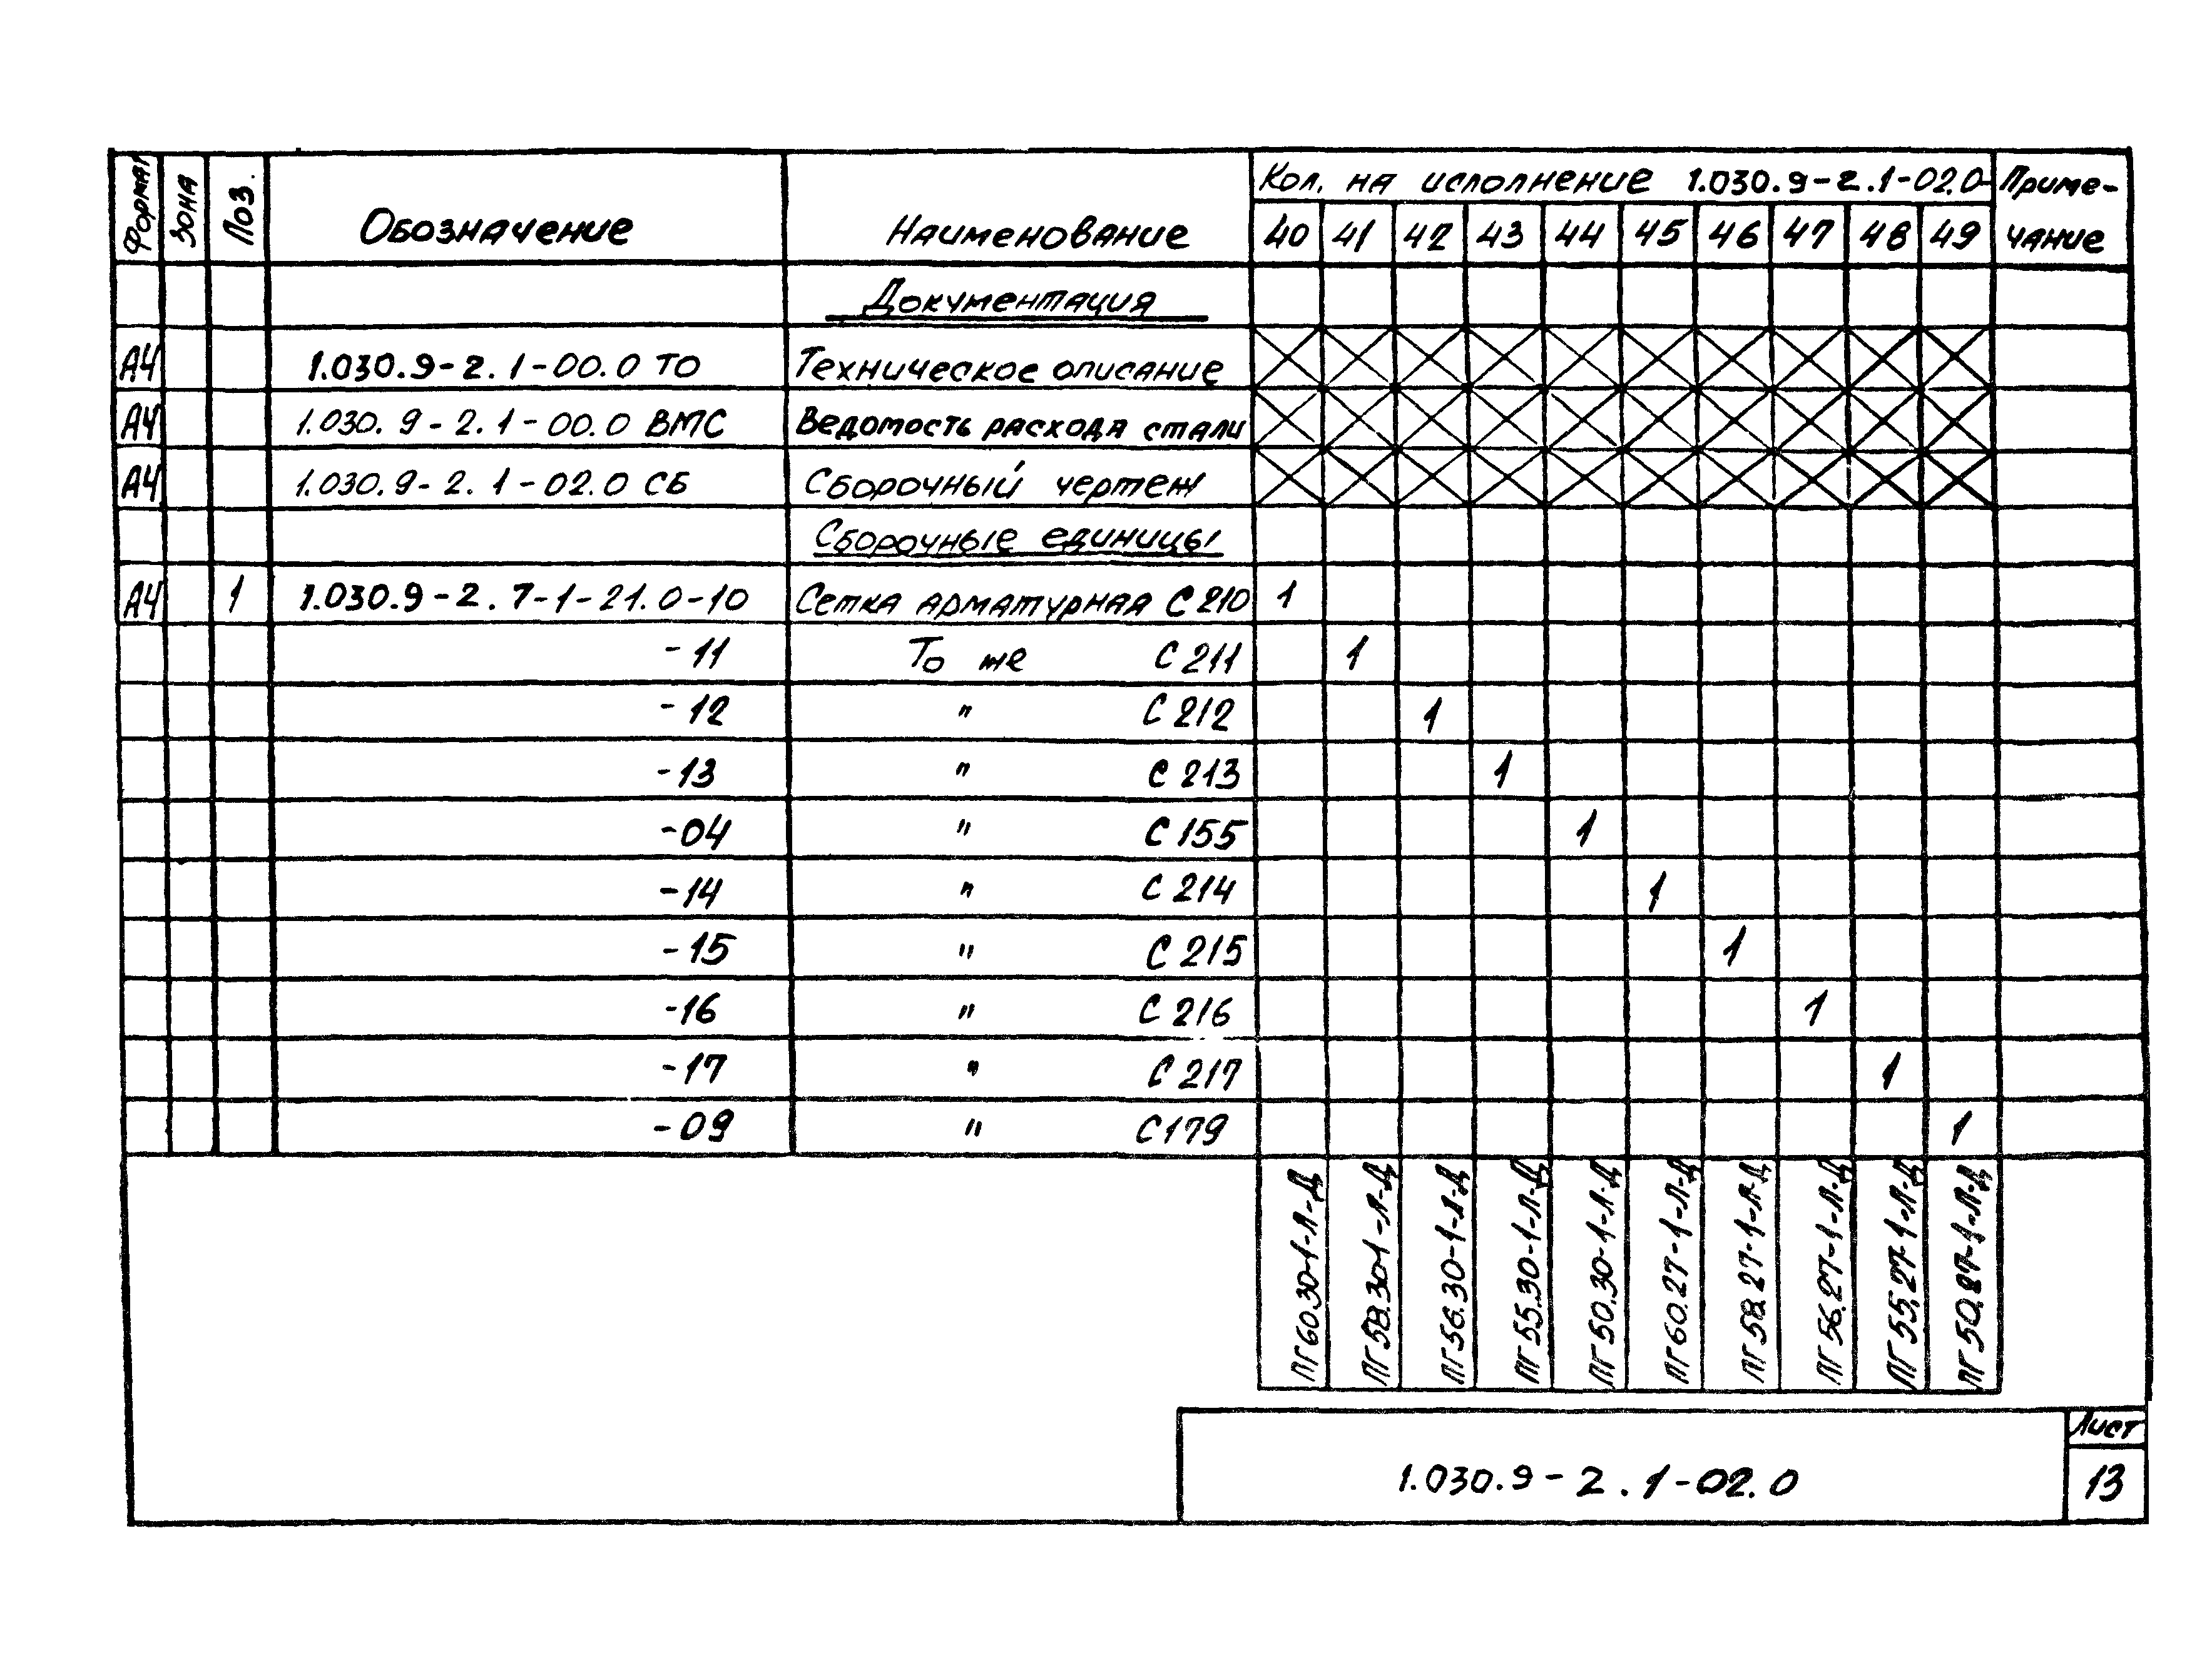 Формат Зона Поз. Обозначение Наименование Кол. на исполнение 1.030.9-2.1-02.0- Приме-
40 41 42 43 44 45 46 47 48 49 чание
Документация
А4 1.030.9-2.1-00.0 ТО Техническое описание
А4 1.030.9-2.1-00.0 ВМС Ведомость расхода стали
А4 1.030.9-2.1-02.0 СБ Сборочный чертеж
Сборочные единицы
А4 1 1.030.9-2.7-1-21.0-10 Сетка арматурная С 210 1
-11 То же С 211 1
-12 " С 212 1
-13 " С 213 1
-04 " С 155 1
-14 " С 214 1
-15 " С 215 1
-16 " С 216 1
-17 " С 217 1
-09 " С 179 1
ПГ 60.30-1-Л-Д
ПГ 58.30-1-Л-Д
ПГ 56.30-1-Л-Д
ПГ 55.30-1-Л-Д
ПГ 50.30-1-Л-Д
ПГ 60.27-1-Л-Д
ПГ 58.27-1-Л-Д
ПГ 56.27-1-Л-Д
ПГ 55.27-1-Л-Д
ПГ 50.27-1-Л-Д
1.030.9-2.1-02.0
Лист
13